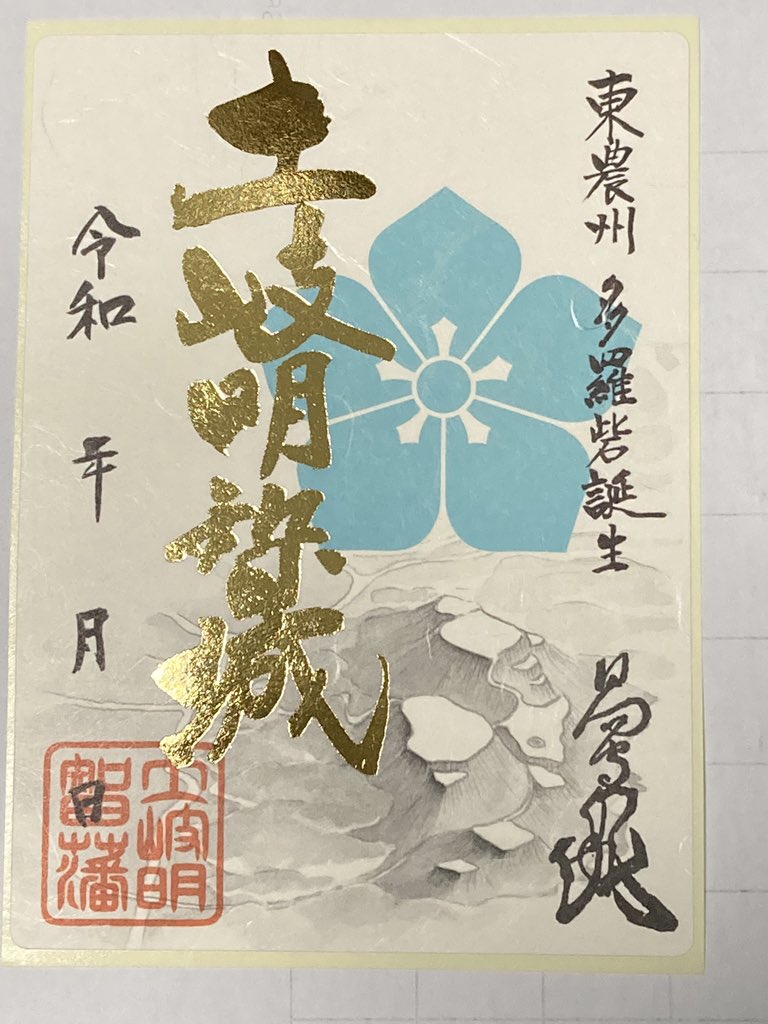 東農州 多羅砦誕生
土岐明智城
令和 年 月 日
土岐明
智藩